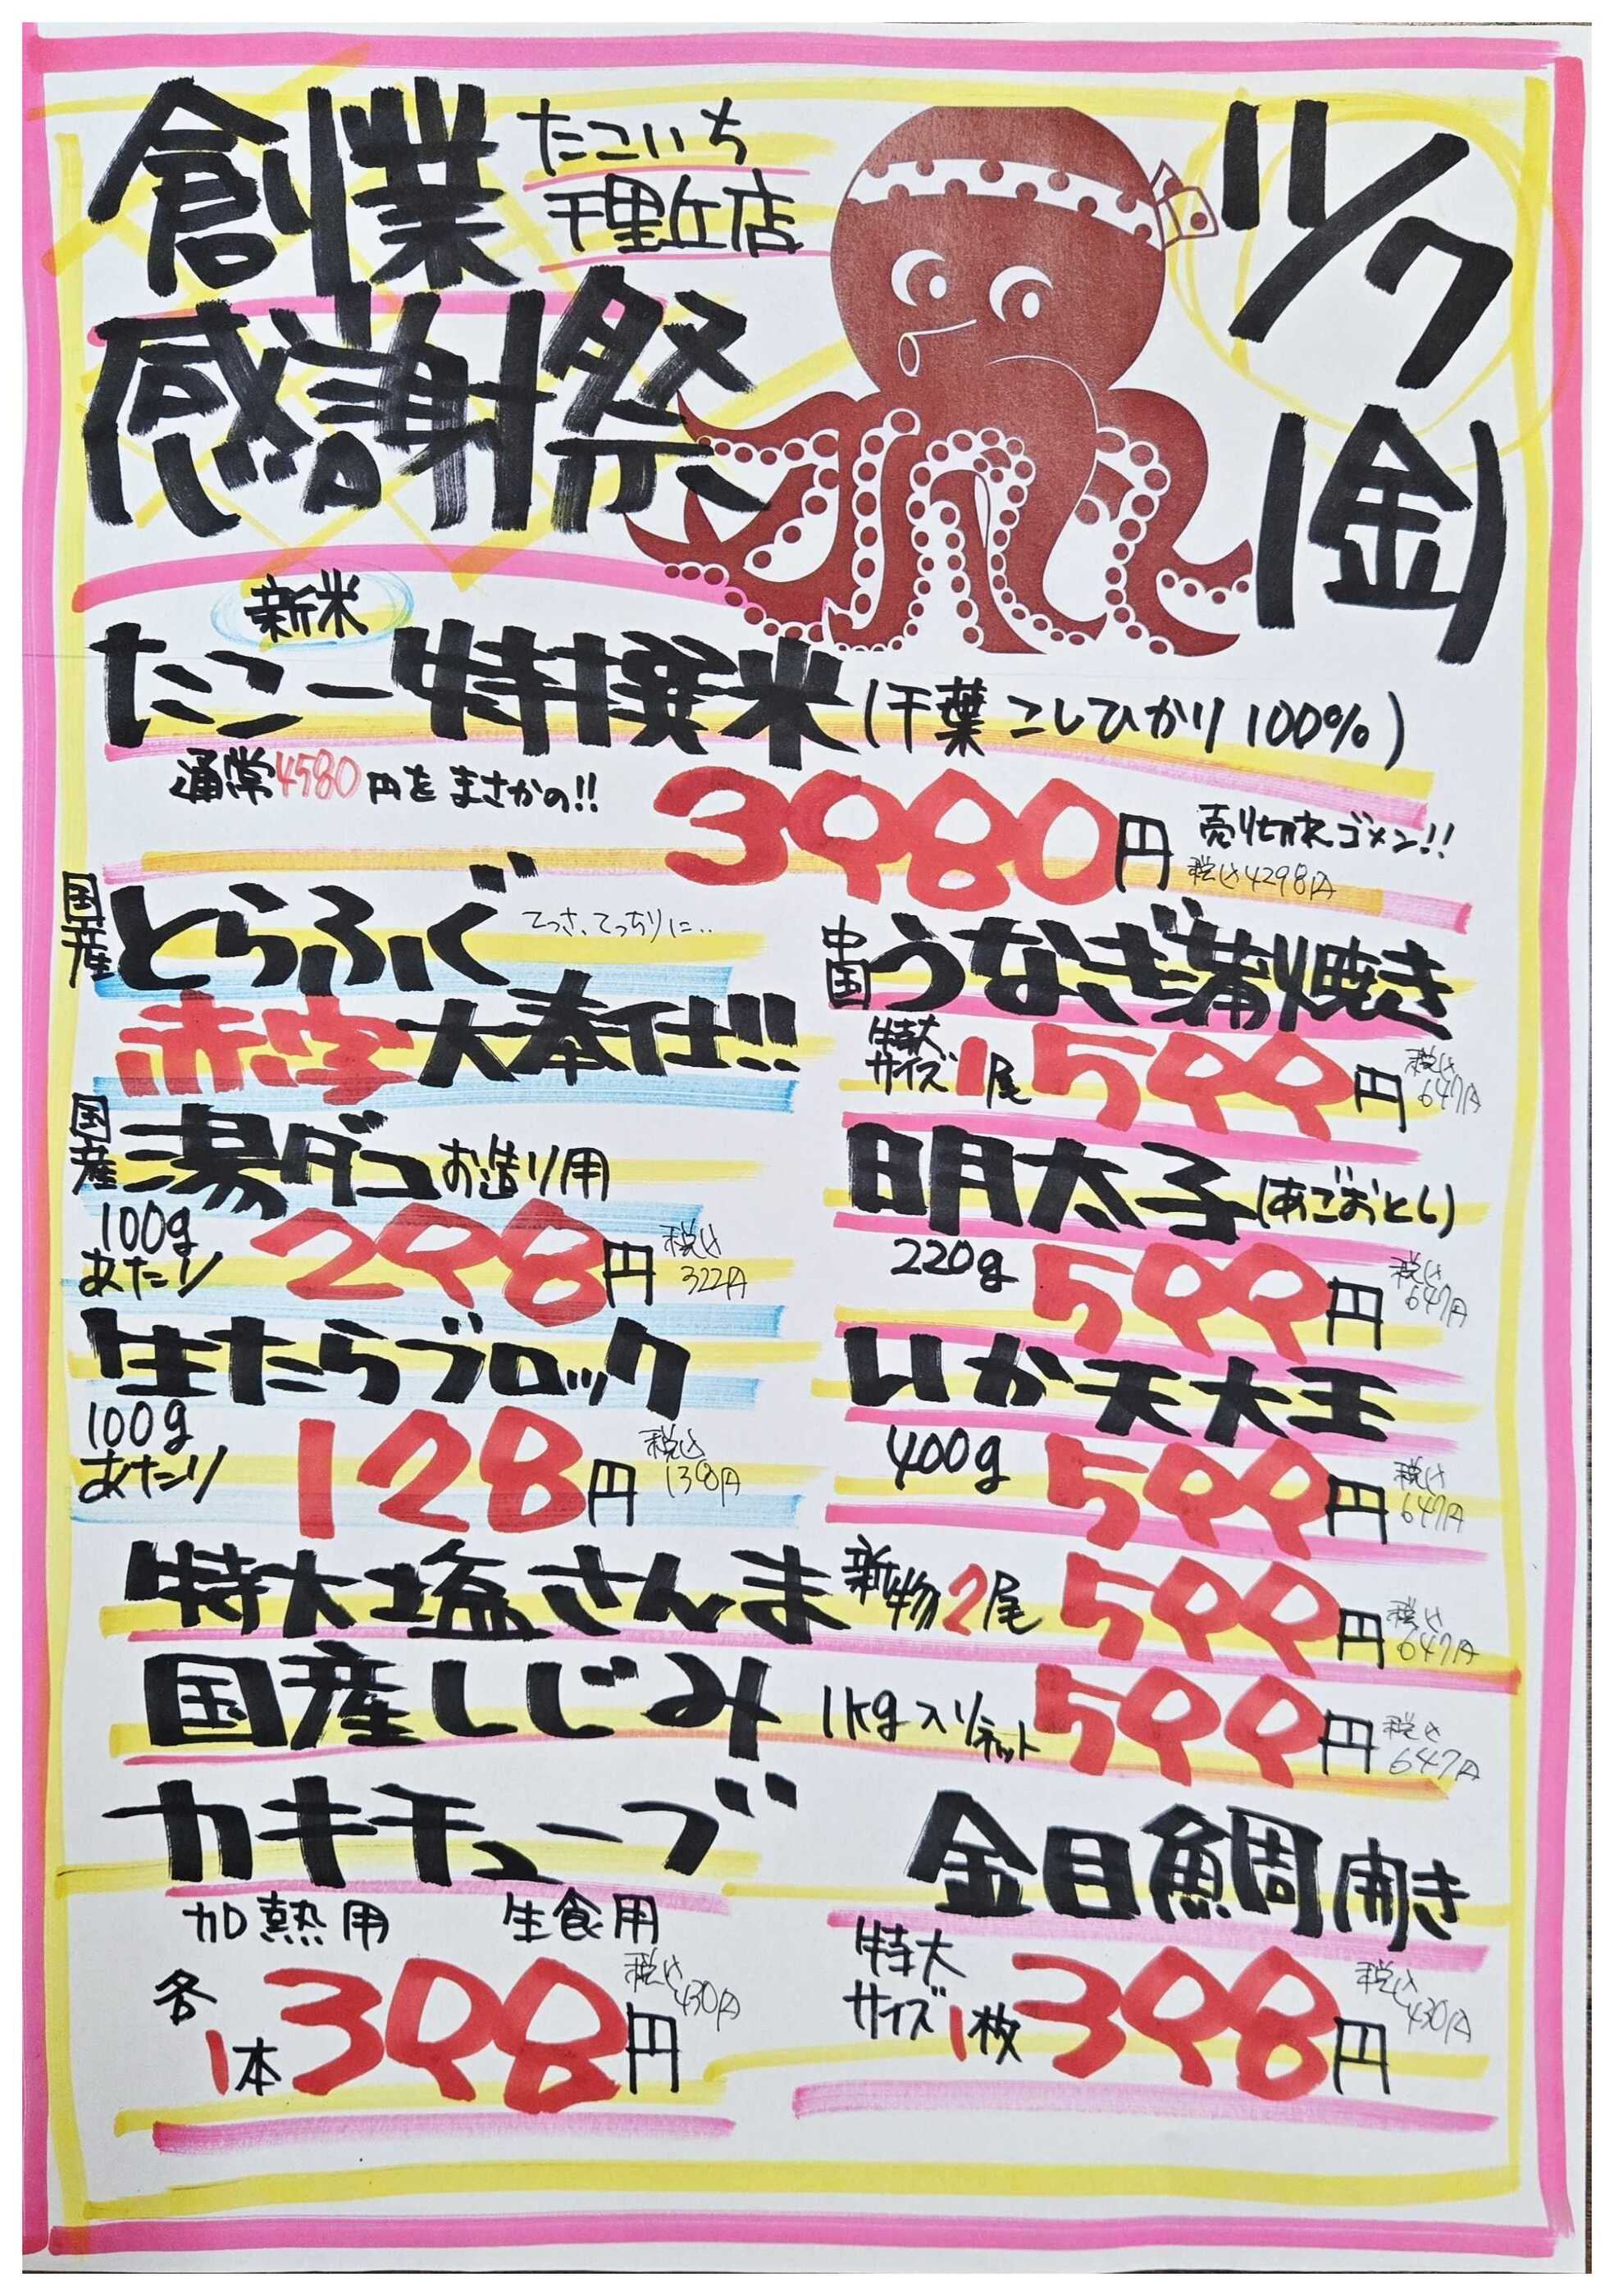 創業
感謝祭
たこいち
千里丘店
11/7
(金)
新米
たこ一特撰米(千葉 こしひかり 100%)
通常4580円をまさかの!! 3980円 売り切れゴメン!!
税込4298円
国産とらふぐ てっさ、てっちりに..
赤字大奉仕!!
国産 湯ダコ お造り用
100g あたり 298円 税込 322円
生たらブロック
100g あたり 128円 税込 138円
中国 うなぎ蒲焼き
特大サイズ 1尾 599円 税込 647円
明太子(あごおとし)
220g 599円 税込 647円
いか天大王
400g 599円 税込 647円
特大塩さんま 新物 2尾 599円 税込 647円
国産しじみ 1kg入りネット 599円 税込 647円
カキチューブ
加熱用 生食用
各1本 398円 税込 430円
金目鯛開き
特大サイズ 1枚 398円 税込 430円